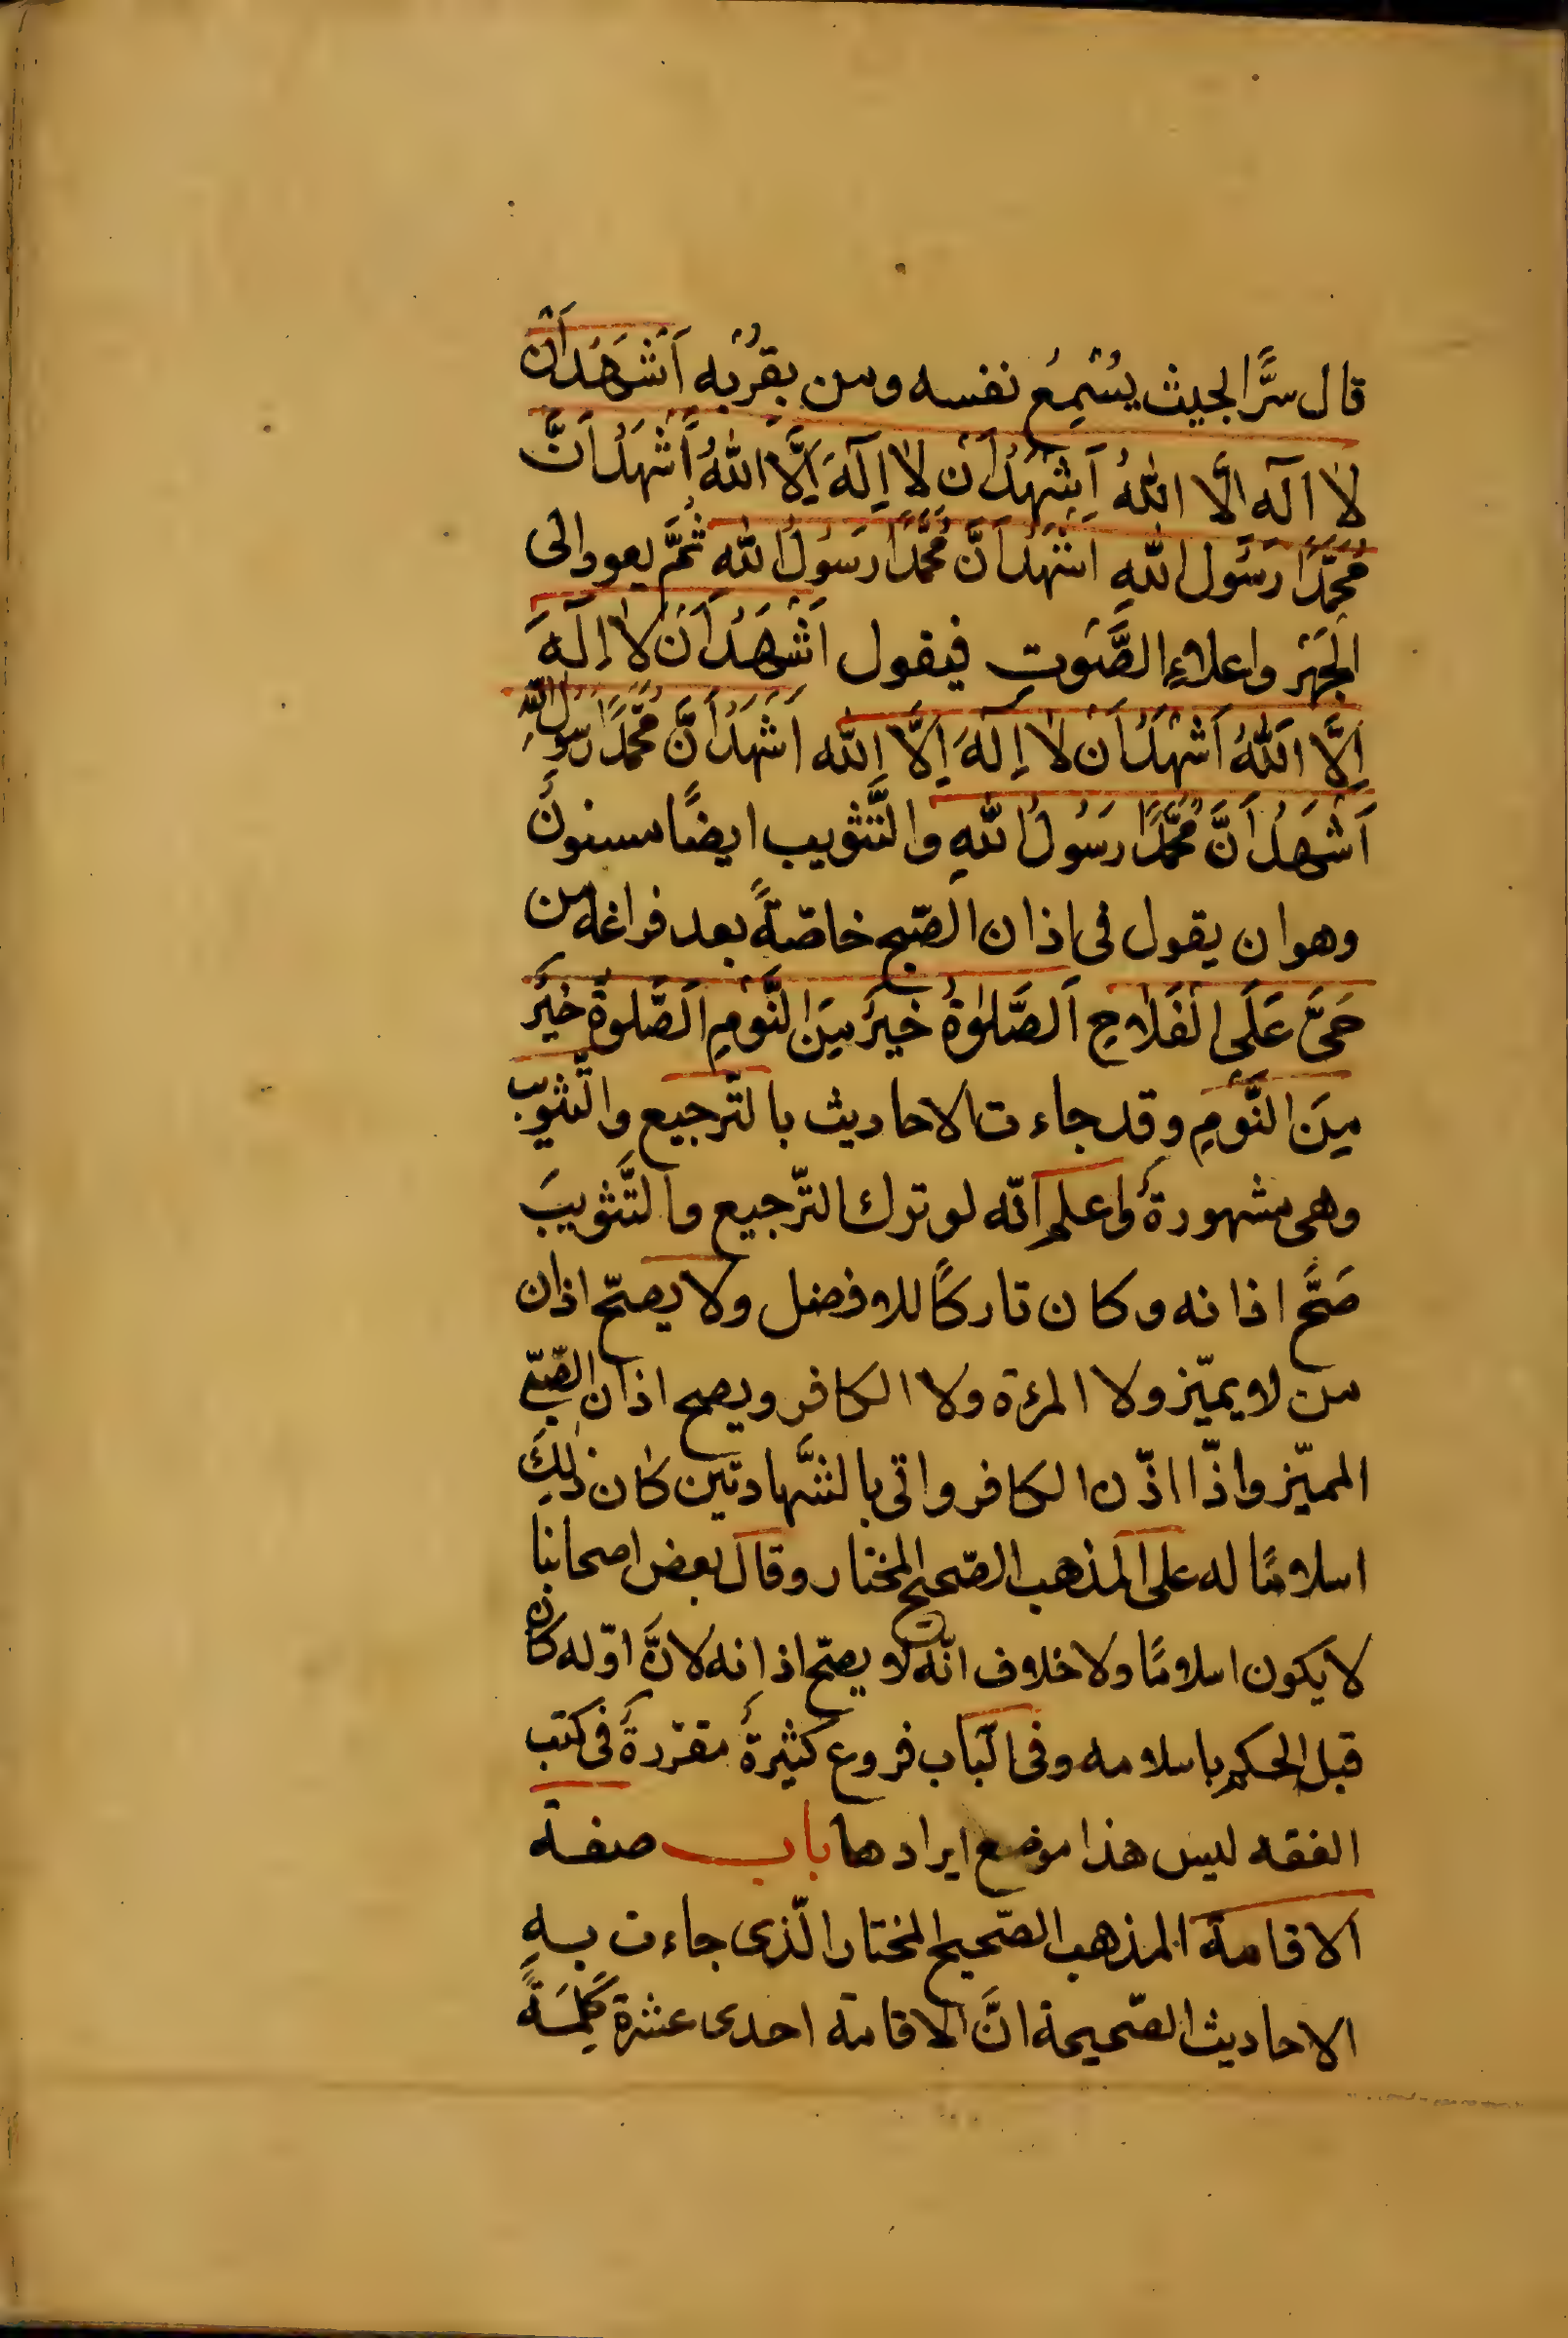 قال سرًّا بحيث يُسْمِعُ نفسه ومن بقُرْبِه اَشْهَدُ اَنْ
لا اله الَّا اللهُ اَشْهَدُ اَنْ لا اِلٰهَ اِلَّا اللهُ اَشْهَدُ اَنَّ
مُحَمَّدًا رَسُول اللهِ اَشْهَدُ اَنَّ مُحَمَّدًا رَسُولُ اللهِ ثُمَّ يعود الى
الجَهْر واعلاءِ الصَّوتِ فيقول اَشْهَدُ اَنْ لا اِلٰهَ
اِلَّا اللهُ اَشْهَدُ اَنْ لا اِلٰهَ اِلَّا الله اَشْهَدُ اَنَّ مُحَمَّدًا رَسُولُ اللهِ
اَشْهَدُ اَنَّ مُحَمَّدًا رَسُولُ اللهِ والتَّثْويب ايضًا مسنونٌ
وهو ان يقول فى اذان الصّبح خاصّةً بعد فراغه من
حَىَّ عَلَى الْفَلَاحِ اَلصَّلوٰةُ خَيْرٌ مِنَ النَّوْمِ اَلصَّلوةُ خَيْرٌ
مِنَ النَّوْمِ وقد جاءت الاحاديث بالتّرجيع والتّثويب
وهى مشهورةٌ واعلم انّه لو ترك التّرجيع والتَّثْويبَ
صَحَّ اذانه وكان تاركًا للافضل ولا يصحّ اذان
من لا يميّز ولا المرءة ولا الكافر ويصح اذان الصّبىّ
المميّز واذا اذّن الكافر واتى بالشّهادتين كان ذلِكَ
اسلامًا له على المذهب الصّحيح المختار وقال بعض اصحابنا
لا يكون اسلامًا ولا خلاف انّه لا يصحّ اذانه لانَّ اوّله كان
قبل الحكم باسلامه وفى الباب فروع كثيرةٌ مقرّرةٌ فى كتب
الفقه ليس هذا موضع ايرادها باب صفة
الاقامة المذهب الصّحيح المختار الّذى جاءت بهِ
الاحاديث الصّحيحة انَّ الاقامة احدى عشرة كَلِمَةً